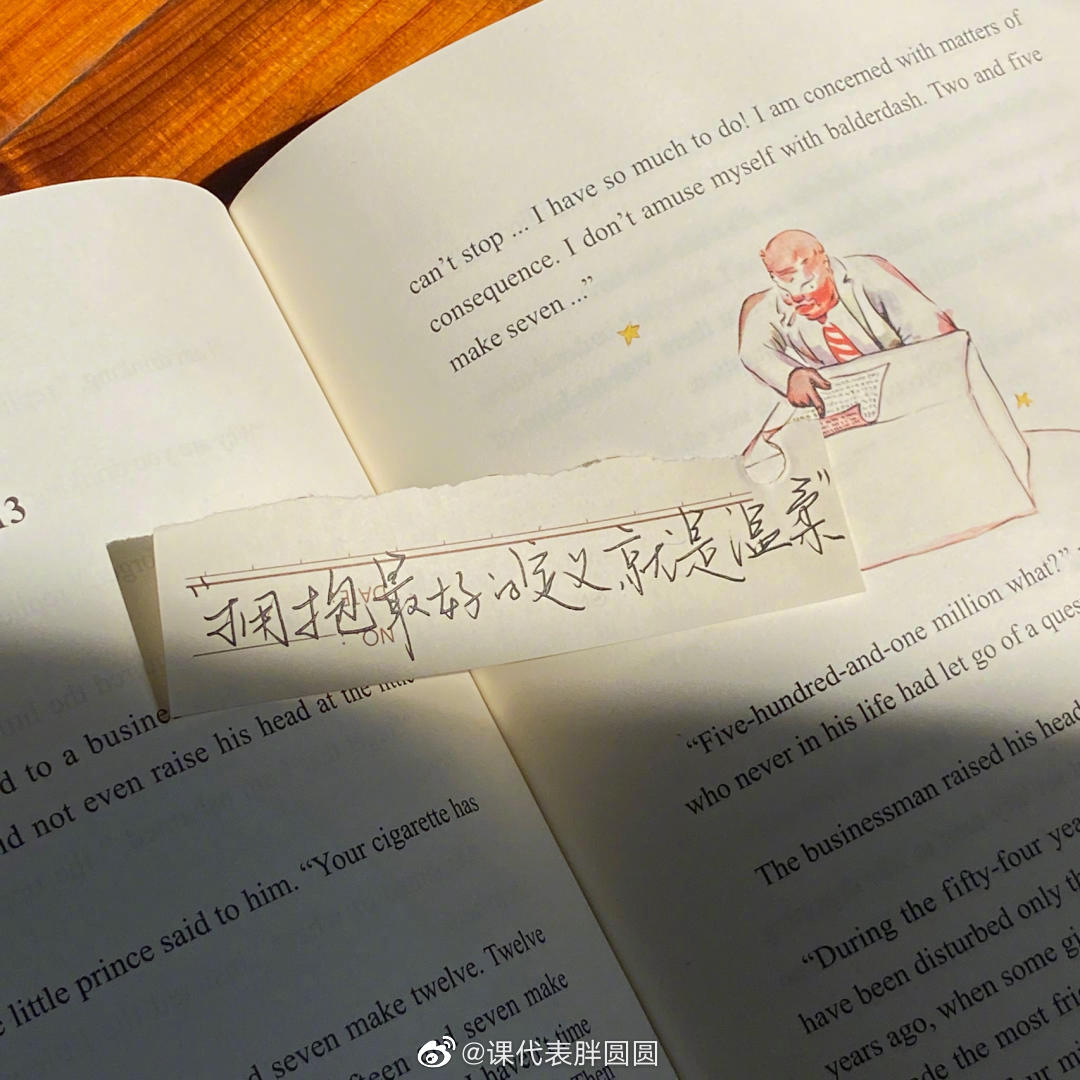 13
d to a busine
d not even raise his head at the little
e little prince said to him. “Your cigarette has
d seven make twelve. Twelve
fteen and seven make
I haven't time
Then
can't stop ... I have so much to do! I am concerned with matters of
consequence. I don't amuse myself with balderdash. Two and five
make seven ...”
“拥抱最好的定义就是温柔”
NO
“Five-hundred-and-one million what?”
who never in his life had let go of a ques
The businessman raised his head
“During the fifty-four yea
have been disturbed only th
years ago, when some gi
de the most fri
ur mi
@课代表胖圆圆